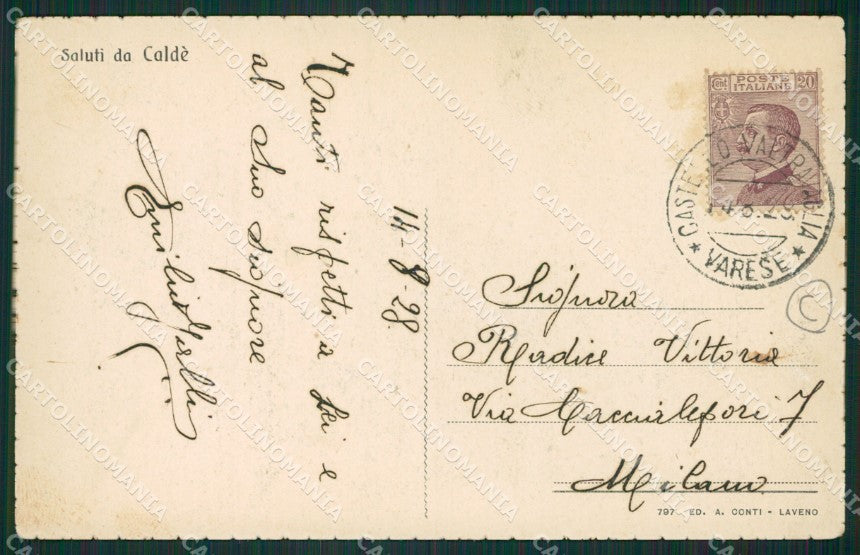 Saluti da Caldè
14-8-28
Tanti rispetti a Lei e
al Suo Signore
Emilio Galli
POSTE
ITALIANE
Cent 20
CASTELLO VALTRAVAGLIA
14.8.28
VARESE
C
Signora
Radice Vittoria
Via Caccialepori 7
Milano
797 ED. A. CONTI - LAVENO
CARTOLINOMANIA